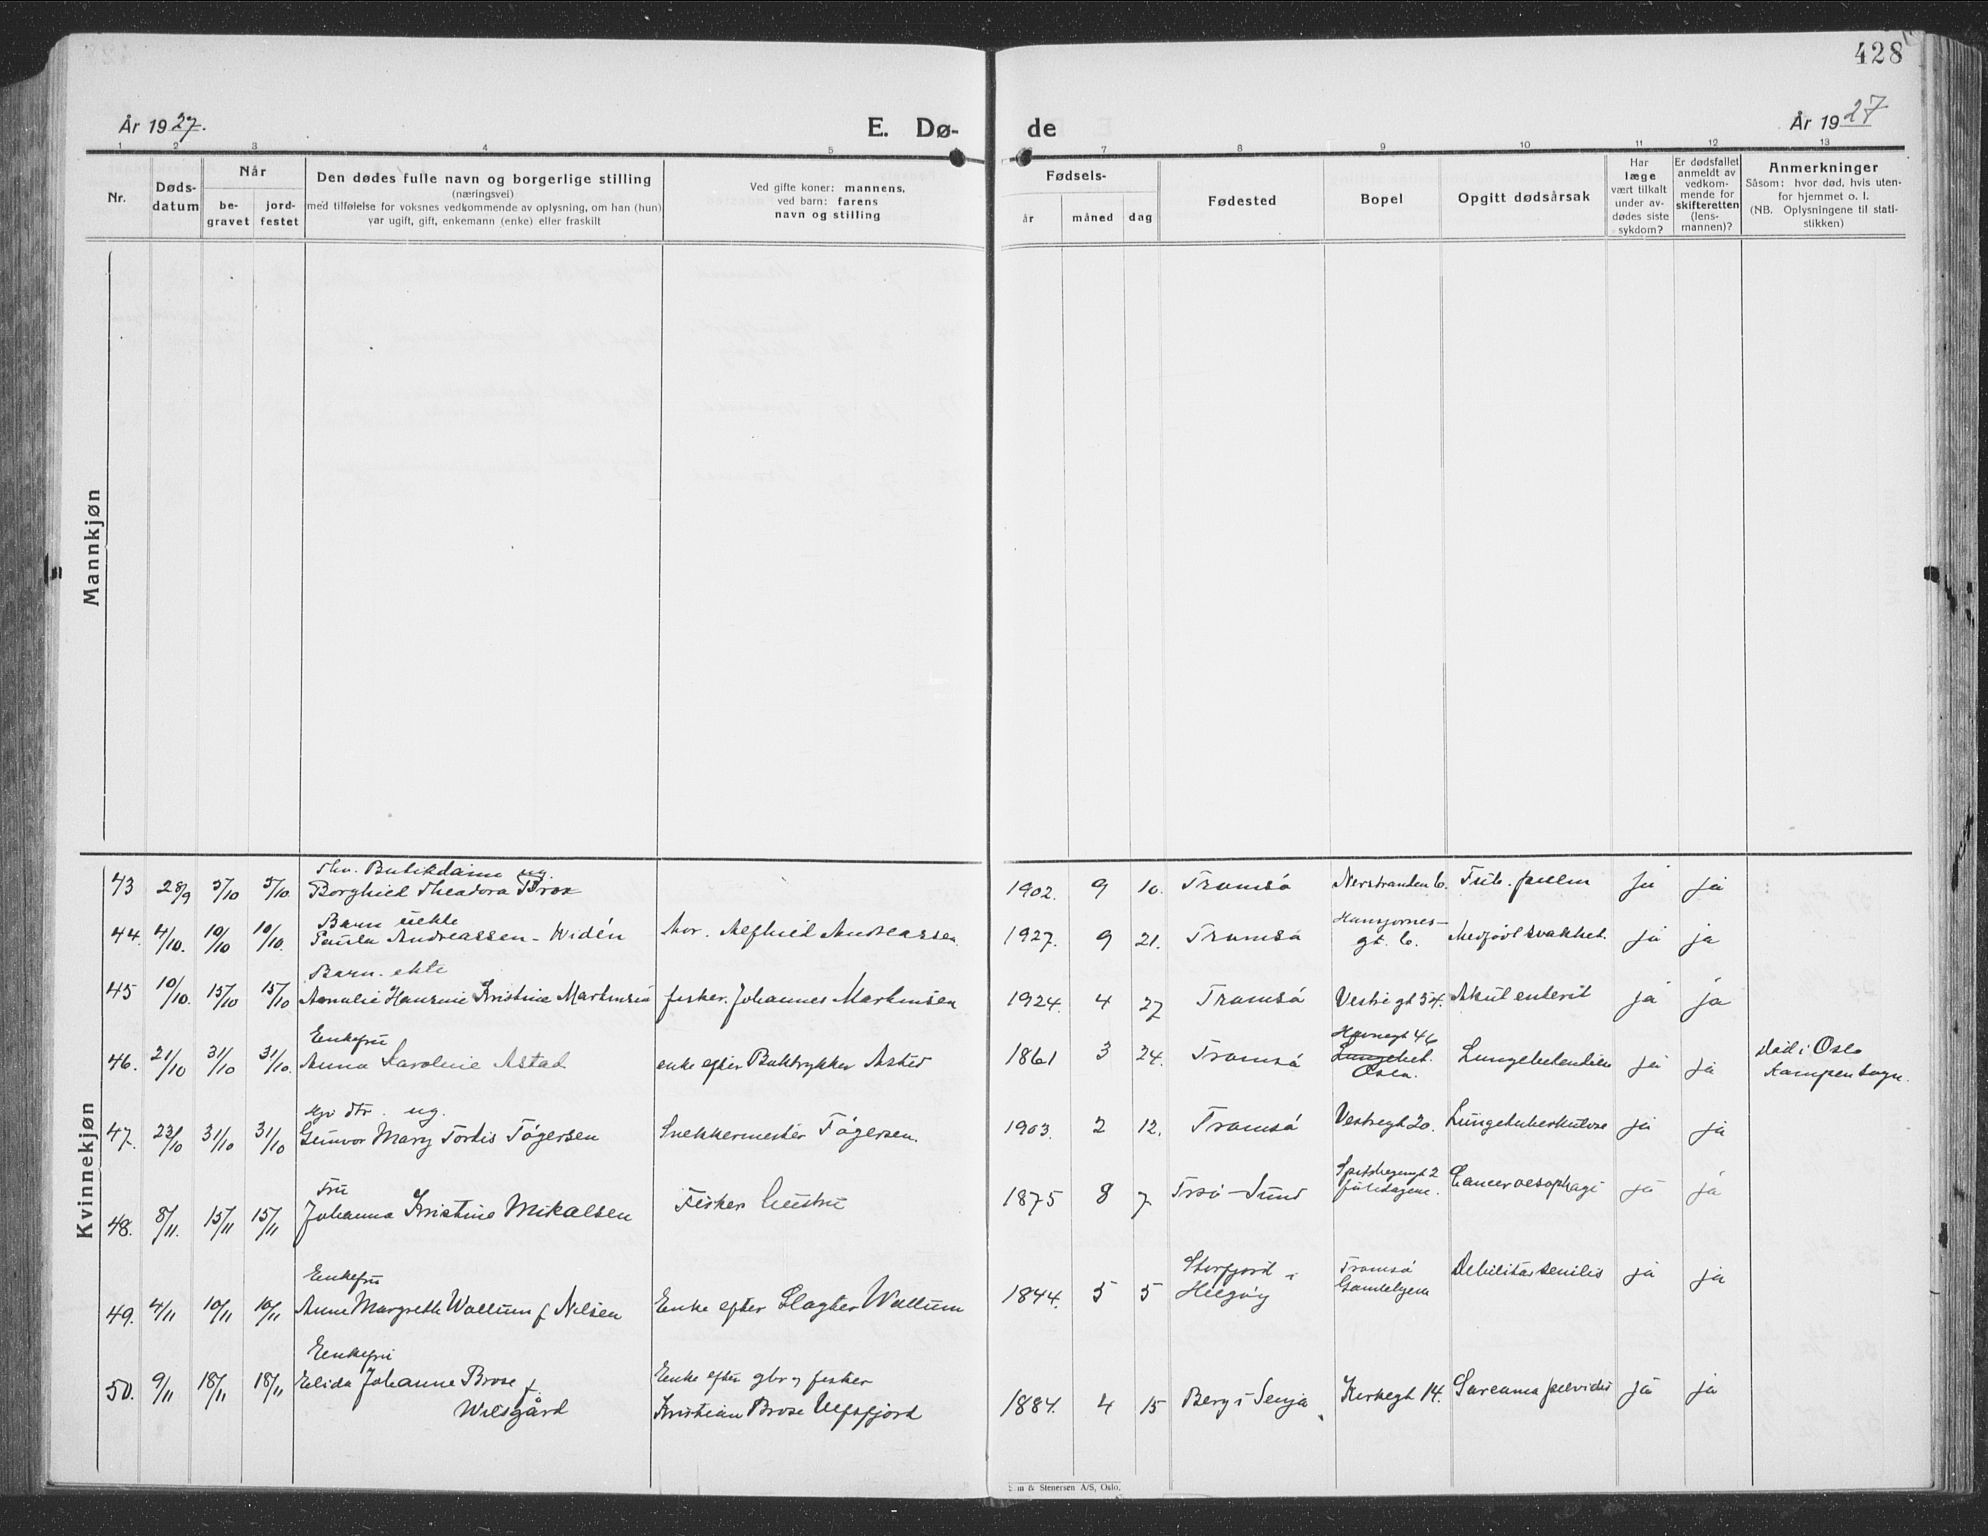 428
År 1927.
E. Dø-
de
År 1927
1 2 3 4 5 7 8 9 10 11 12 13
Nr.
Døds-
datum
Når
be-
gravet
jord-
festet
Den dødes fulle navn og borgerlige stilling
(næringsvei)
med tilføielse for voksnes vedkommende av oplysning, om han (hun)
var ugift, gift, enkemann (enke) eller fraskilt
Ved gifte koner: mannens,
ved barn: farens
navn og stilling
Fødsels-
år
måned
dag
Fødested
Bopel
Opgitt dødsårsak
Har
læge
vært tilkalt
under av-
dødes siste
sykdom?
Er dødsfallet
anmeldt av
vedkom-
mende for
skifteretten
(lens-
mannen)?
Anmerkninger
Såsom: hvor død, hvis uten-
for hjemmet o. l.
(NB. Oplysningene til stati-
stikken)
Mannkjøn
Kvinnekjøn
fhv. Butikdame ug.
43 28/9 5/10 5/10. Borghild Theodora Brox 1902. 9 10. Tromsø Nerstranden 6. Tub. pulm ja ja
Barn uekte
44. 4/10. 10/10 10/10. Paula Andreassen - Widén Mor. Alfhild Andreassen 1927. 9 21. Tromsø Hansjordnes-
gt. 6. Medfødt svakhet. ja ja
Barn. ekte
45 10/10. 15/10 15/10 Amalie Hansine Kristine Martinsen fisker. Johannes Martinsen 1924. 4 27 Tromsø Vestregt 54. Akut enterit ja ja
Enkefru
46. 21/10 31/10 31/10. Anna Karoline Astad enke efter Boktrykker Astad 1861 3 24. Tromsø Havnegt 46
Oslo. Lungebetendelse ja ja død i Oslo
Kampen sogn.
ug.
47. 23/10 31/10 31/10 Gunvor Mary Tordis Tøgersen Snekkermester Tøgersen. 1903. 2 12. Tromsø Vestregt 20. Lungetuberkulose ja ja
Fru
48. 8/11. 15/11 15/11 Johanna Kristine Mikalsen Fisker 1875 8 7 Trsø-Sund Spitsbergengt 2 Cancer oesophagi ja ja
Enkefru
49. 4/11 10/11 10/11 Anne Margreth Wollum f Nilsen Enke efter Slagter Wollum 1844. 5 5 Storfjord i
Helgøy Tromsø
Gamlehjem Debilitas senilis ja ja
Enkefru
50. 9/11 18/11 18/11 Elida Johanne Brose f.
Wilsgård Enke efter gbr og fisker
Kristian Brose Ulfsfjord 1884. 4 15 Berg i Senja Kirkegt 14. Sarcoma pelvidis ja ja
& Stenersen A/S, Oslo.